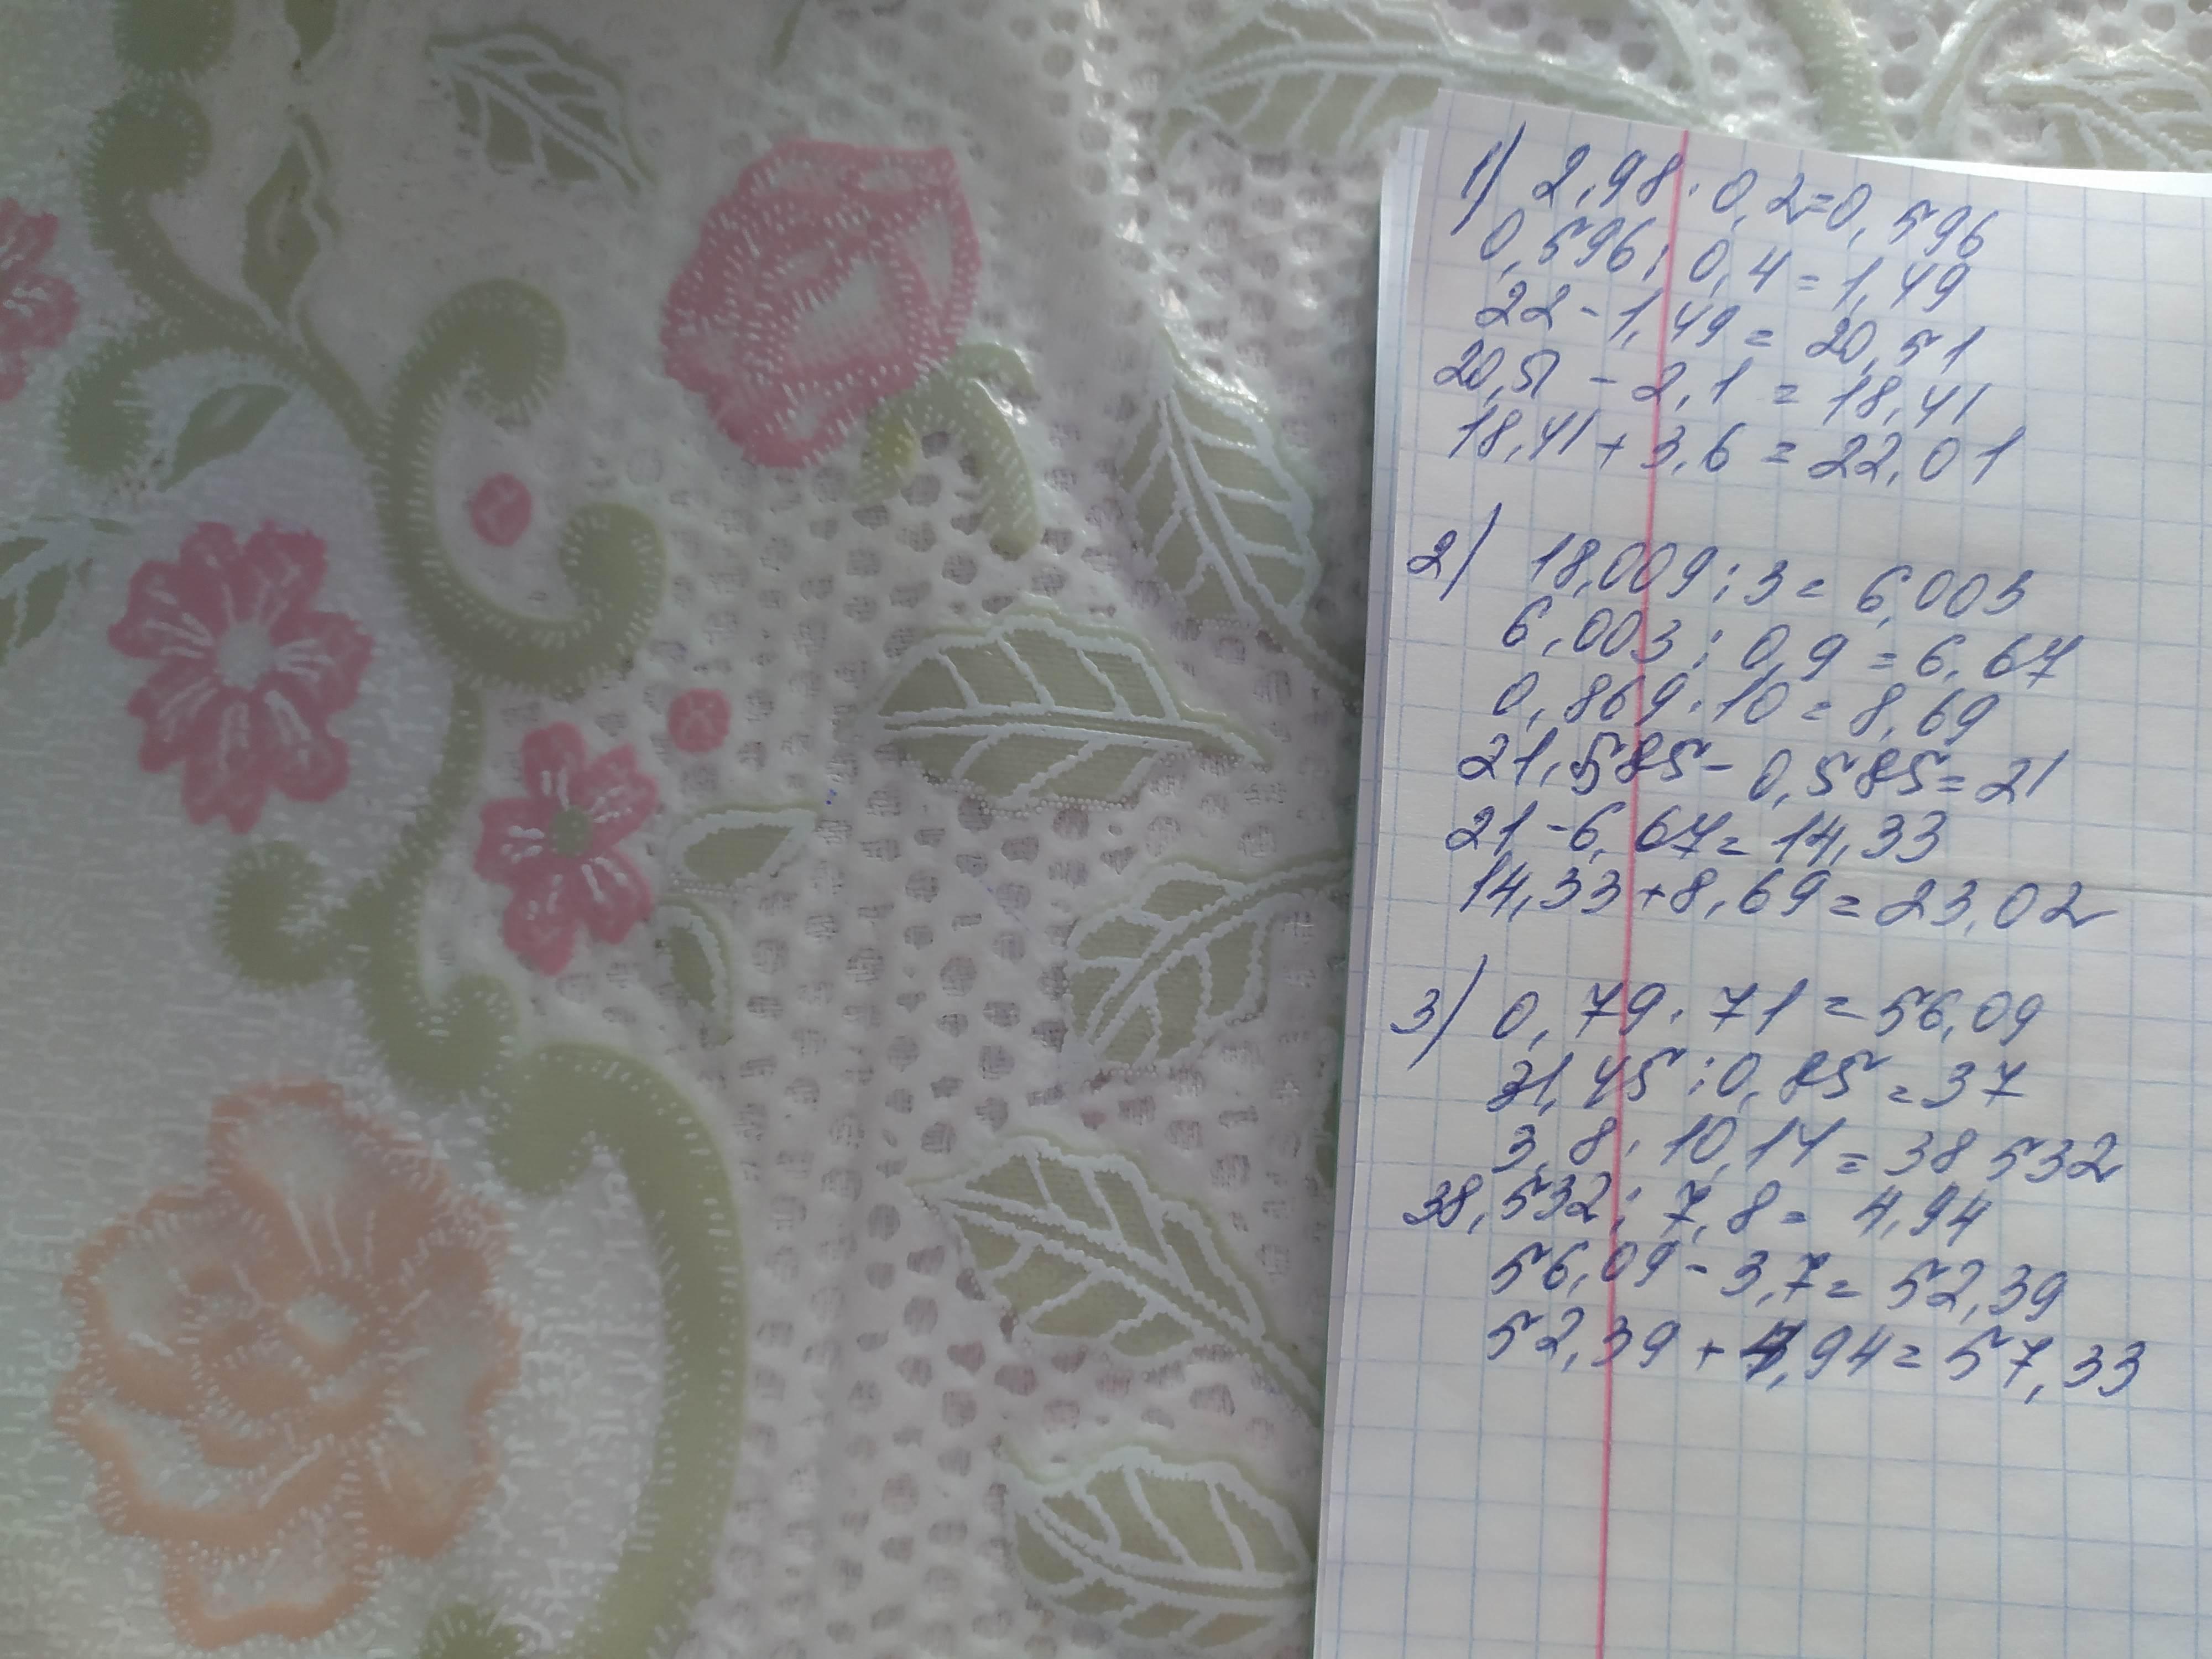 1) 2,98 · 0,2=0,596
0,596 : 0,4 = 1,49
22 - 1,49 = 20,51
20,51 - 2,1 = 18,41
18,41 + 3,6 = 22,01
2) 18,009 : 3 = 6,003
6,003 : 0,9 = 6,67
0,869 · 10 = 8,69
21,585 - 0,585 = 21
21 - 6,67 = 14,33
14,33 + 8,69 = 23,02
3) 0,79 · 71 = 56,09
31,45 : 0,85 = 37
3,8 · 10,14 = 38 532
38,532 : 7,8 = 4,94
56,09 - 3,7 = 52,39
52,39 + 4,94 = 57,33